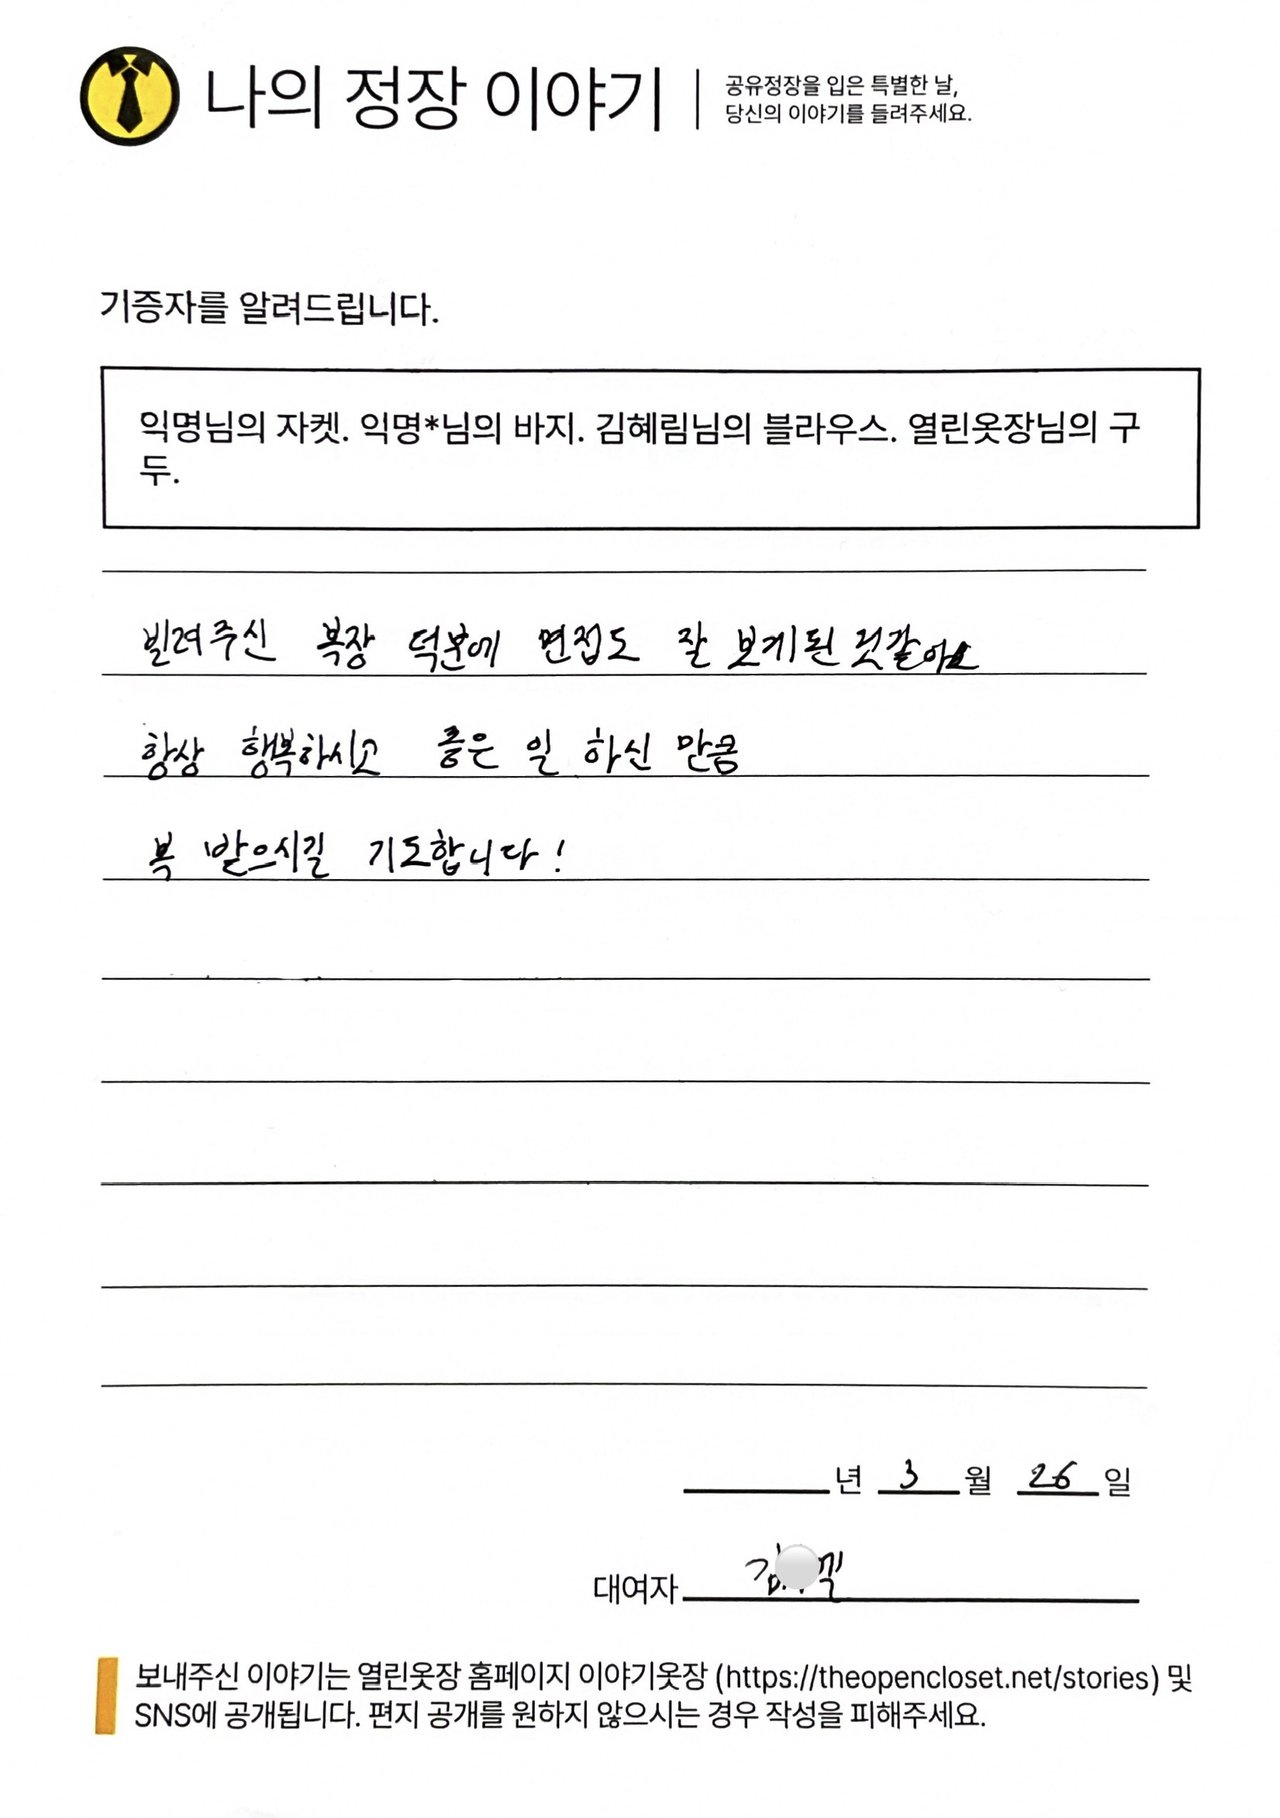 나의 정장 이야기
공유정장을 입은 특별한 날,
당신의 이야기를 들려주세요.
기증자를 알려드립니다.
익명님의 자켓. 익명*님의 바지. 김혜림님의 블라우스. 열린옷장님의 구
두.
빌려주신 복장 덕분에 면접도 잘 보게된 것같아요
항상 행복하시고 좋은 일 하신 만큼
복 받으시길 기도합니다!
년 3 월 26 일
대여자 김
보내주신 이야기는 열린옷장 홈페이지 이야기옷장 (https://theopencloset.net/stories) 및
SNS에 공개됩니다. 편지 공개를 원하지 않으시는 경우 작성을 피해주세요.